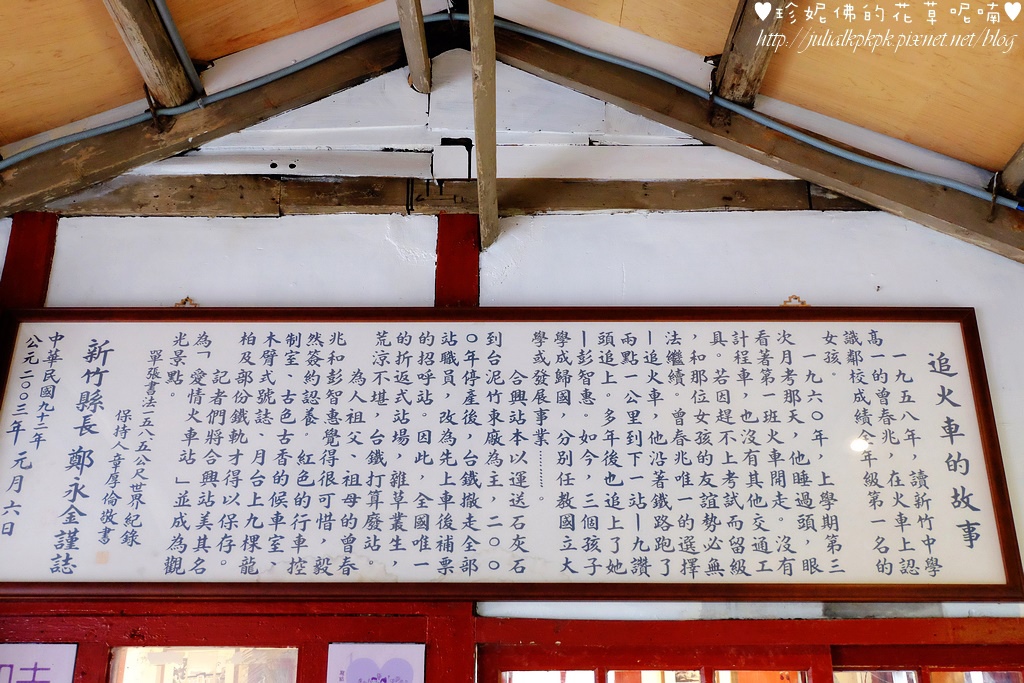 ♥珍妮佛的花草呢喃♥
http://julialkpkpk.pixnet.net/blog
追火車的故事
一九五八年，讀新竹中學
高一的曾春兆，在火車上認
識鄰校成績全年級第一名的
女孩。
一九六０年，上學期第三
次月考那天，他睡過頭，眼
看著第一班火車開走。沒有
計程車，也沒有其他交通工
具。若因趕不上考試而留級
，和那位女孩的友誼勢必無
法繼續。曾春兆唯一的選擇
｜追火車，他沿著鐵路跑了
兩點一公里到下一站｜九讚
頭追上。多年後也追上了她
｜彭智惠。如今，三個孩子
學成歸國，分別任教國立大
學或發展事業………。
合興站本以運送石灰石
到台泥竹東廠為主，二００
０年停產後，台鐵撤走全部
站職員，改為先上車後補票
的招呼站。因此，全國唯一
的折返式站場，雜草叢生，
荒涼不堪，台鐵打算廢站。
為人祖父、祖母的曾春
兆和彭智惠覺得很可惜，毅
然簽約認養。紅色的行車控
制室、古色古香的候車室，
木臂式號誌、月台上九棵龍
柏及部份鐵軌才得以保存。
記者們將合興站美其名
為「愛情火車站」並成為觀
光景點。
單張書法一五八五公文世界紀錄
保持人章厚倫敬書
新竹縣長 鄭永金謹誌
中華民國九十二年
公元二００三年元月六日